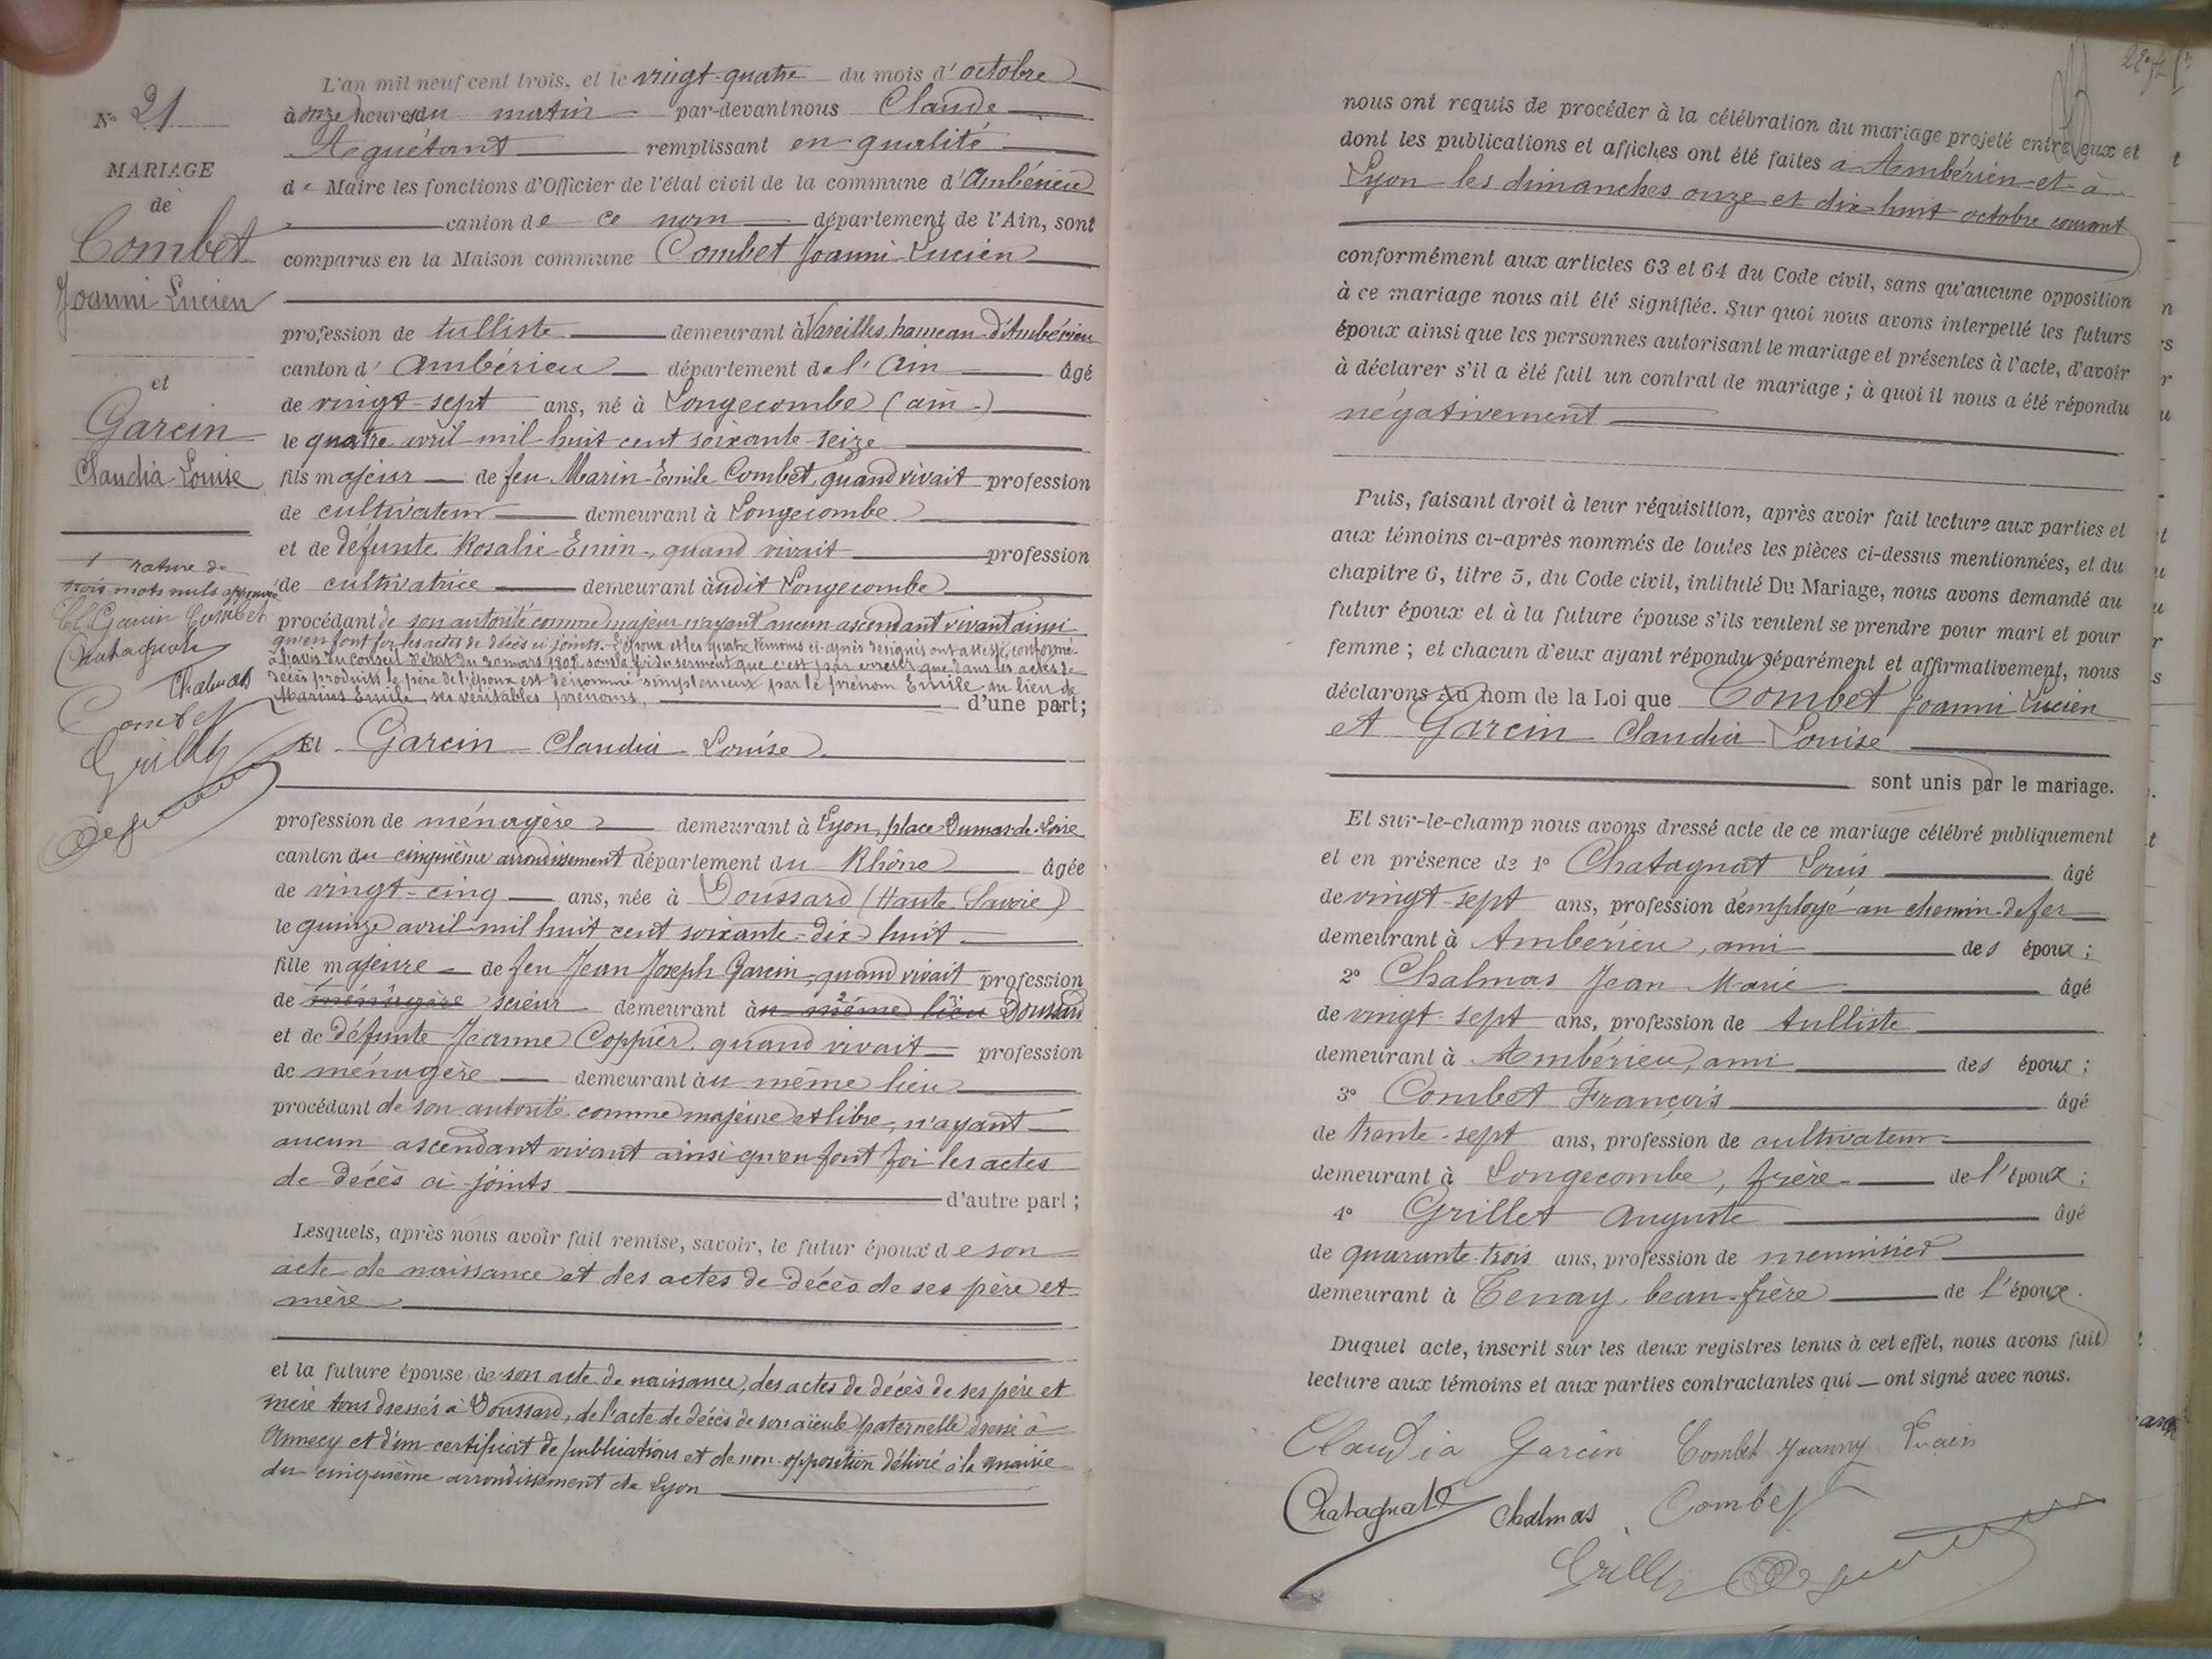 N° 21
MARIAGE
de
Combet
Joanni Lucien
et
Garcin
Claudia Louise
1 rature de
trois mots nuls approuvé
Cl. Garcin Combet
Chatagnat
Chalmas
Combet
Grillet
L'an mil neuf cent trois, et le vingt-quatre du mois d'octobre
à onze heures du matin par-devant nous Claude
Aguétant remplissant en qualité
de Maire les fonctions d'Officier de l'état civil de la commune d'Ambérieu
canton de ce nom département de l'Ain, sont
comparus en la Maison commune Combet Joanni Lucien
profession de tulliste demeurant à Vareilles, hameau d'Ambérieu
canton d'Ambérieu département de l'Ain âgé
de vingt-sept ans, né à Longecombe (Ain)
le quatre avril mil huit cent soixante-seize
fils majeur de feu Marin Emile Combet, quand vivait profession
de cultivateur demeurant à Longecombe
et de défunte Rosalie Emin, quand vivait profession
de cultivatrice demeurant àudit Longecombe
procédant de son autorité comme majeur n'ayant aucun ascendant vivant ainsi
qu'en font foi les actes de décès ci-joints. L'époux et les quatre témoins ci-après désignés ont attesté, conformé-
à l'avis du Conseil d'état du 30 mars 1808, sous la foi du serment que c'est par erreur que dans les actes de
décès produits le père de l'époux est dénommé simplement par le prénom Emile au lieu de
Marius Emile, ses véritables prénoms, d'une part;
Et Garcin Claudia Louise
profession de ménagère demeurant à Lyon, place Dumas-de-Loire
canton du cinquième arrondissement département du Rhône âgée
de vingt-cinq ans, née à Doussard (Haute-Savoie)
le quinze avril mil huit cent soixante-dix-huit
fille majeure de feu Jean Joseph Garcin, quand vivait profession
de ménagère scieur demeurant àu même lieu Doussard
et de défunte Jeanne Coppier, quand vivait profession
de ménagère demeurant àu même lieu
procédant de son autorité comme majeure et libre, n'ayant
aucun ascendant vivant ainsi qu'en font foi les actes
de décès ci-joints d'autre part;
Lesquels, après nous avoir fait remise, savoir, le futur époux de son
acte de naissance et des actes de décès de ses père et
mère
et la future épouse de son acte de naissance, des actes de décès de ses père et
mère tous dressés à Doussard, de l'acte de décès de son aïeule paternelle dressé à
Annecy et d'un certificat de publications et de non-opposition délivré à la mairie
du cinquième arrondissement de Lyon
nous ont requis de procéder à la célébration du mariage projeté entre eux et
dont les publications et affiches ont été faites à Ambérieu et à
Lyon les dimanches onze et dix-huit octobre courant
conformément aux articles 63 et 64 du Code civil, sans qu'aucune opposition
à ce mariage nous ait été signifiée. Sur quoi nous avons interpellé les futurs
époux ainsi que les personnes autorisant le mariage et présentes à l'acte, d'avoir
à déclarer s'il a été fait un contrat de mariage; à quoi il nous a été répondu
négativement
Puis, faisant droit à leur réquisition, après avoir fait lecture aux parties et
aux témoins ci-après nommés de toutes les pièces ci-dessus mentionnées, et du
chapitre 6, titre 5, du Code civil, intitulé Du Mariage, nous avons demandé au
futur époux et à la future épouse s'ils veulent se prendre pour mari et pour
femme; et chacun d'eux ayant répondu séparément et affirmativement, nous
déclarons au nom de la Loi que Combet Joanni Lucien
et Garcin Claudia Louise
sont unis par le mariage.
Et sur-le-champ nous avons dressé acte de ce mariage célébré publiquement
et en présence de 1° Chatagnat Louis âgé
de vingt-sept ans, profession d'employé au chemin de fer
demeurant à Ambérieu, ami des époux;
2° Chalmas Jean Marie âgé
de vingt-sept ans, profession de tulliste
demeurant à Ambérieu, ami des époux;
3° Combet François âgé
de trente-sept ans, profession de cultivateur
demeurant à Longecombe, frère de l'époux;
4° Grillet Auguste âgé
de quarante-trois ans, profession de menuisier
demeurant à Tenay, beau-frère de l'époux.
Duquel acte, inscrit sur les deux registres tenus à cet effet, nous avons fait
lecture aux témoins et aux parties contractantes qui ont signé avec nous.
Claudia Garcin Combet Joanny Lucien
Chatagnat Chalmas Combet
Grillet